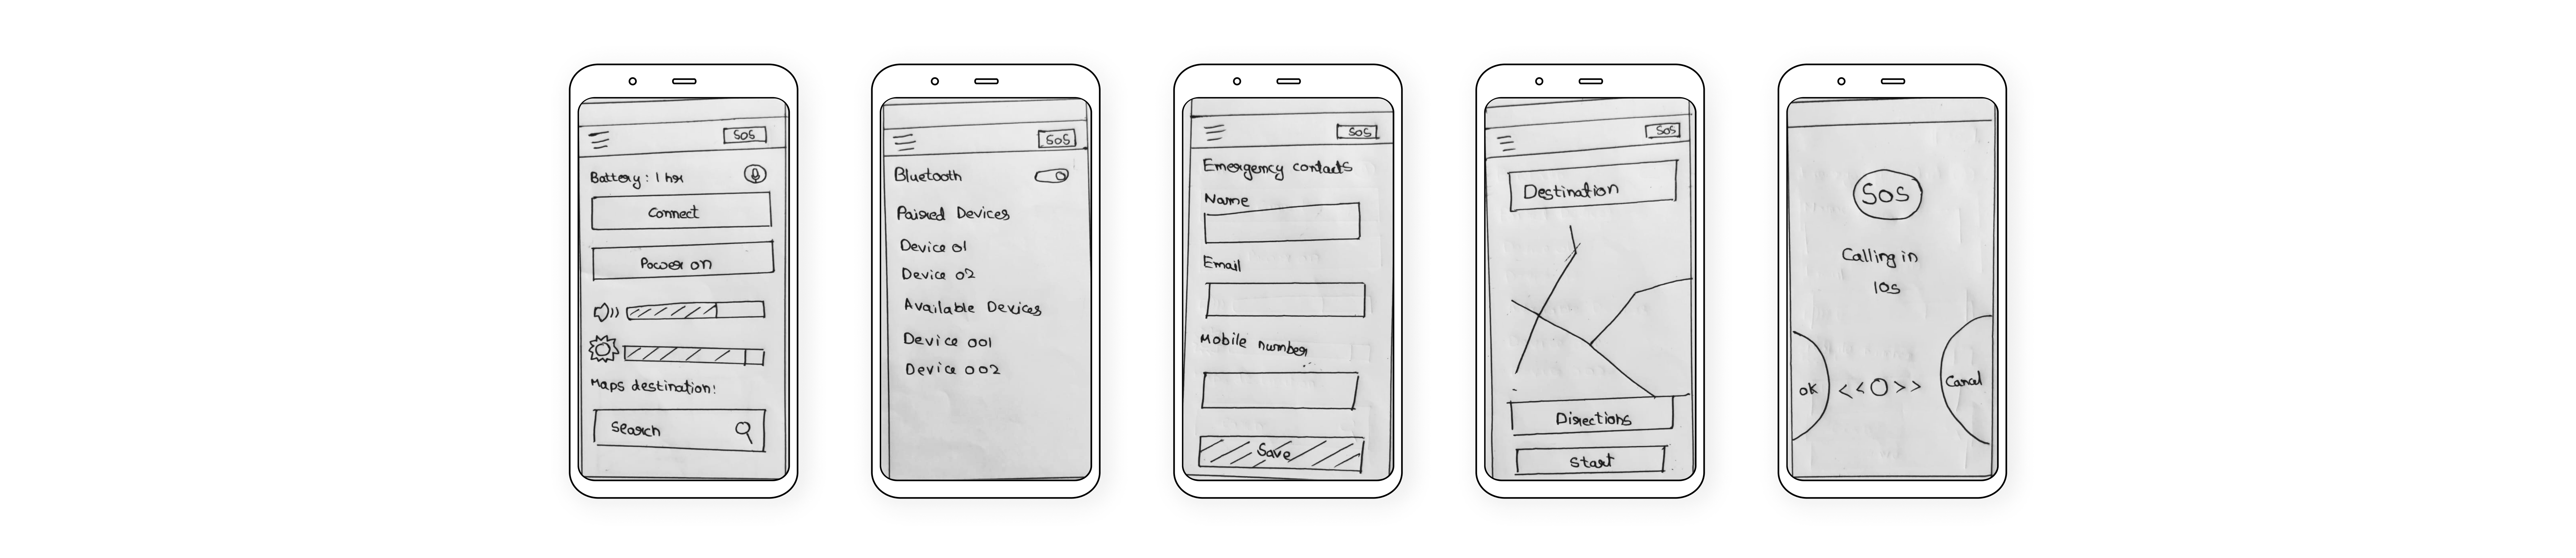 SOS
Battery : 1 hr
Connect
Power on
Maps destination:
Search
SOS
Bluetooth
Paired Devices
Device 01
Device 02
Available Devices
Device 001
Device 002
SOS
Emergency contacts
Name
Email
Mobile number
Save
SOS
Destination
Directions
Start
SOS
Calling in
10s
OK << O >> Cancel